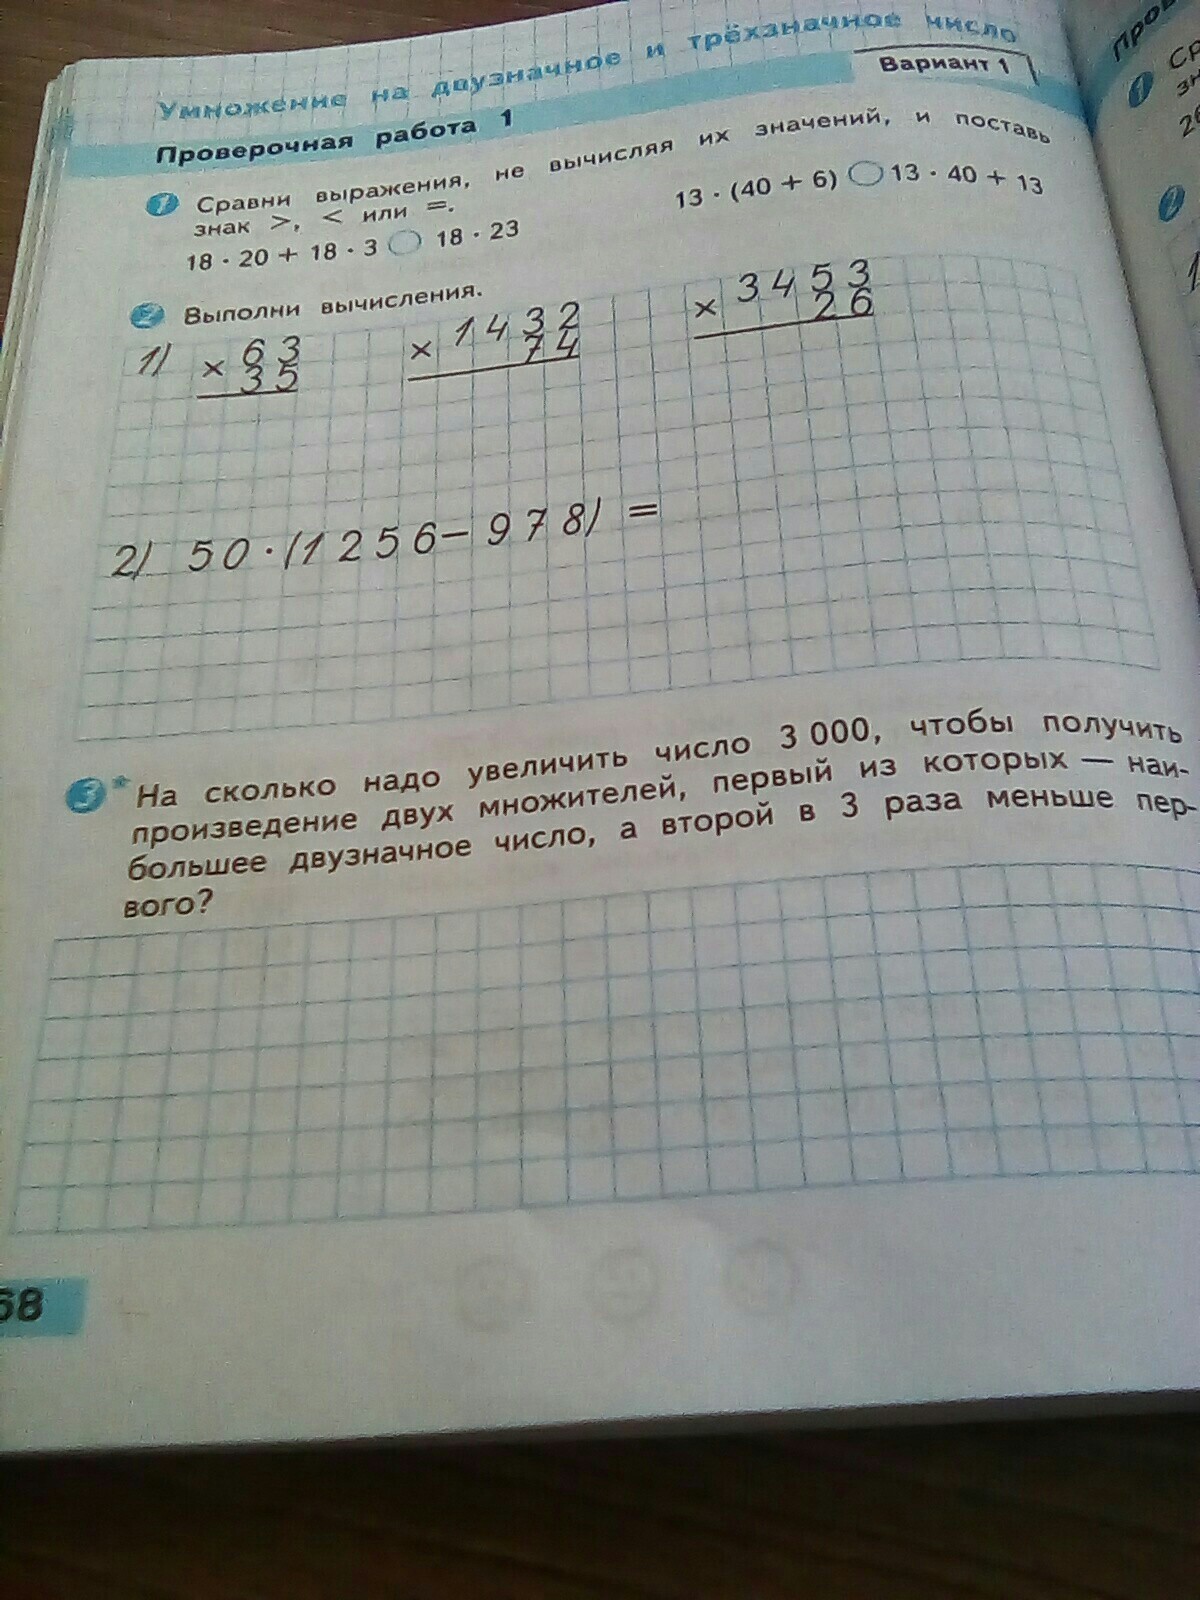 Умножение на двузначное и трёхзначное число
Проверочная работа 1
Вариант 1
1 Сравни выражения, не вычисляя их значений, и поставь
знак >, < или =.
18 · 20 + 18 · 3 18 · 23
13 · (40 + 6) 13 · 40 + 13
2 Выполни вычисления.
1) × 63
35
× 1432
74
× 3453
26
2) 50·(1256−978) =
3* На сколько надо увеличить число 3 000, чтобы получить
произведение двух множителей, первый из которых — наи-
большее двузначное число, а второй в 3 раза меньше пер-
вого?
68
1
2